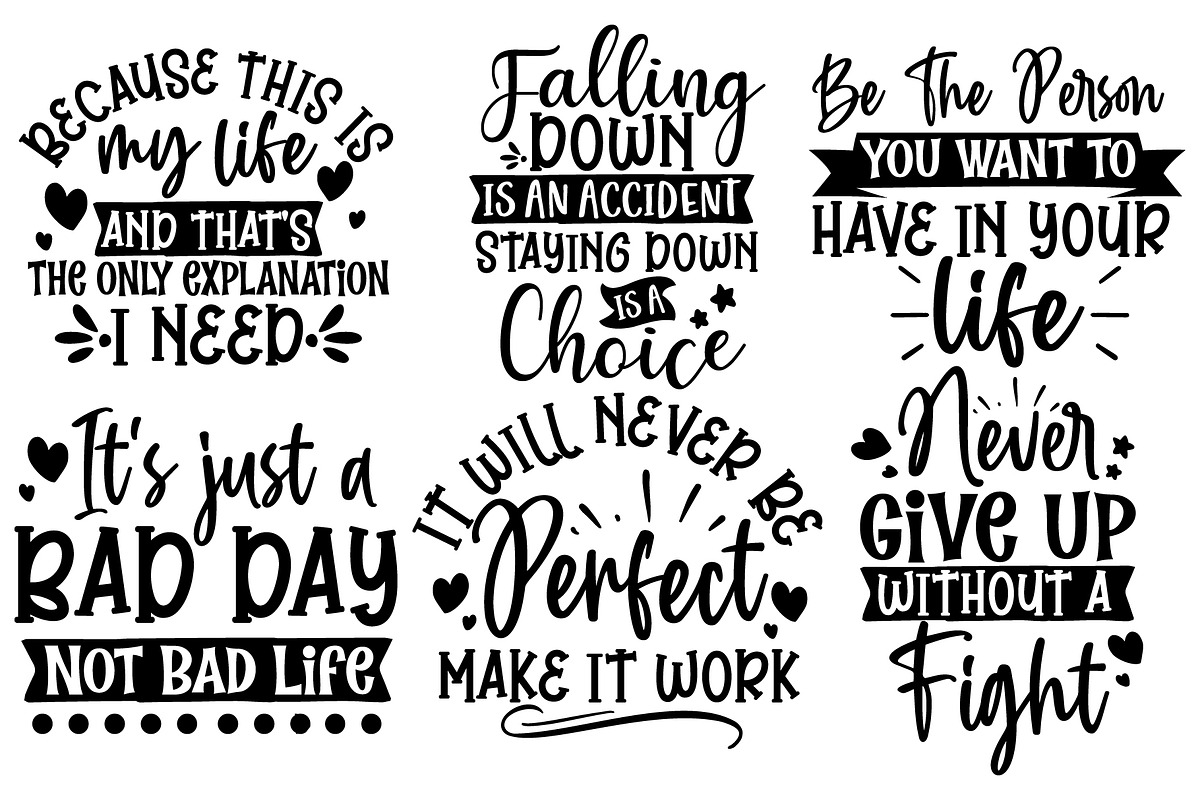 BECAUSE THIS IS
my life
AND THAT'S
THE ONLY EXPLANATION
I NEED
Falling
DOWN
IS AN ACCIDENT
STAYING DOWN
IS A
Choice
Be The Person
YOU WANT TO
HAVE IN YOUR
life
It's just a
BAD DAY
NOT BAD LiFe
IT WILL NEVER BE
Perfect
MAKE IT WORK
Never
GiVe UP
WITHOUT A
Fight